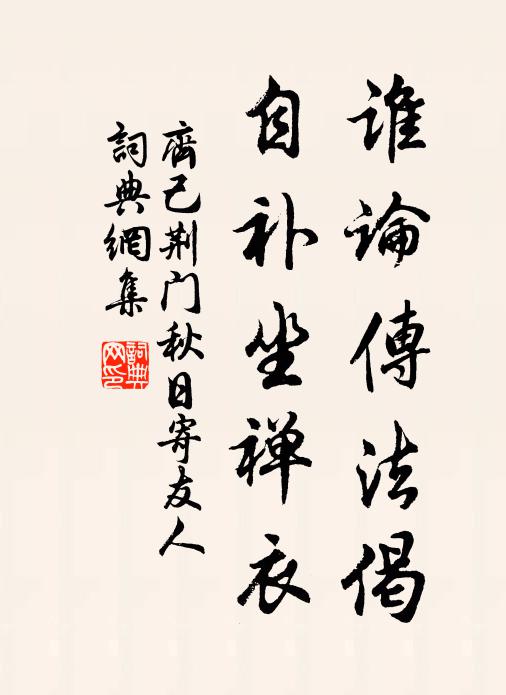 誰論傳法偈
自补坐禅衣
齊己荆门秋日寄友人
詞典網集
詞典网印